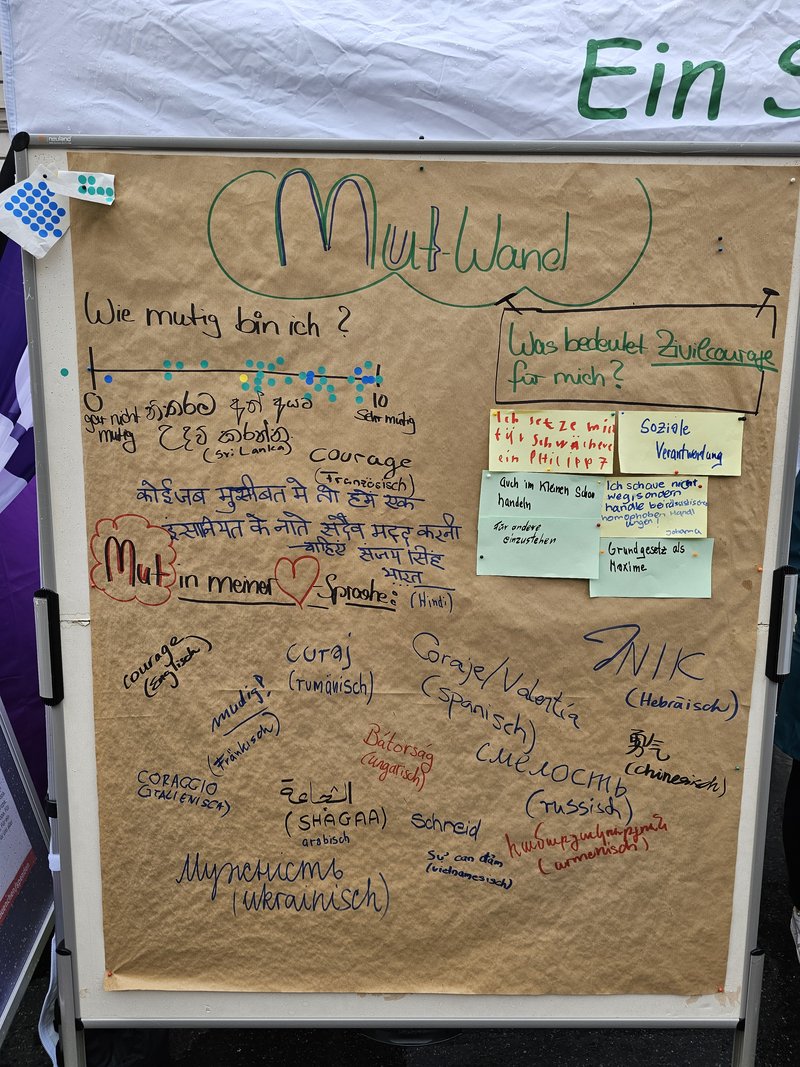 Ein S
neuland
Mut-Wand
Wie mutig bin ich?
0
10
gar nicht
mutig
sehr mutig
(Sri Lanka)
courage
(Französisch)
कोई जब मुसीबत मे तो हमे एक
इसानियत के नाते सदैव मदद करनी
चाहिए संजय सिंह
भारत
(Hindi)
Was bedeutet Zivilcourage
für mich?
Ich setze mich
für Schwächere
ein PHILIPP 7
Soziale
Verantwortung
Auch im Kleinen schon
handeln
für andere
einzustehen
Ich schaue nicht
weg, sondern
handle bei rassistischen
homophoben Handl
ungen!
Johanna
Grundgesetz als
Maxime
Mut in meiner Sprache:
courage
(Englisch)
curaj
(rumänisch)
Coraje/Valentía
(spanisch)
(Hebräisch)
mudig?
(Fränkisch)
Bátorság
(ungarisch)
смелость
(russisch)
勇气
(chinesisch)
CORAGGIO
(ITALIENISCH)
الشجاعة
(SHAGAA)
arabisch
schneid
Sự can đảm
(vietnamesisch)
(armenisch)
Мужнисть
(ukrainisch)